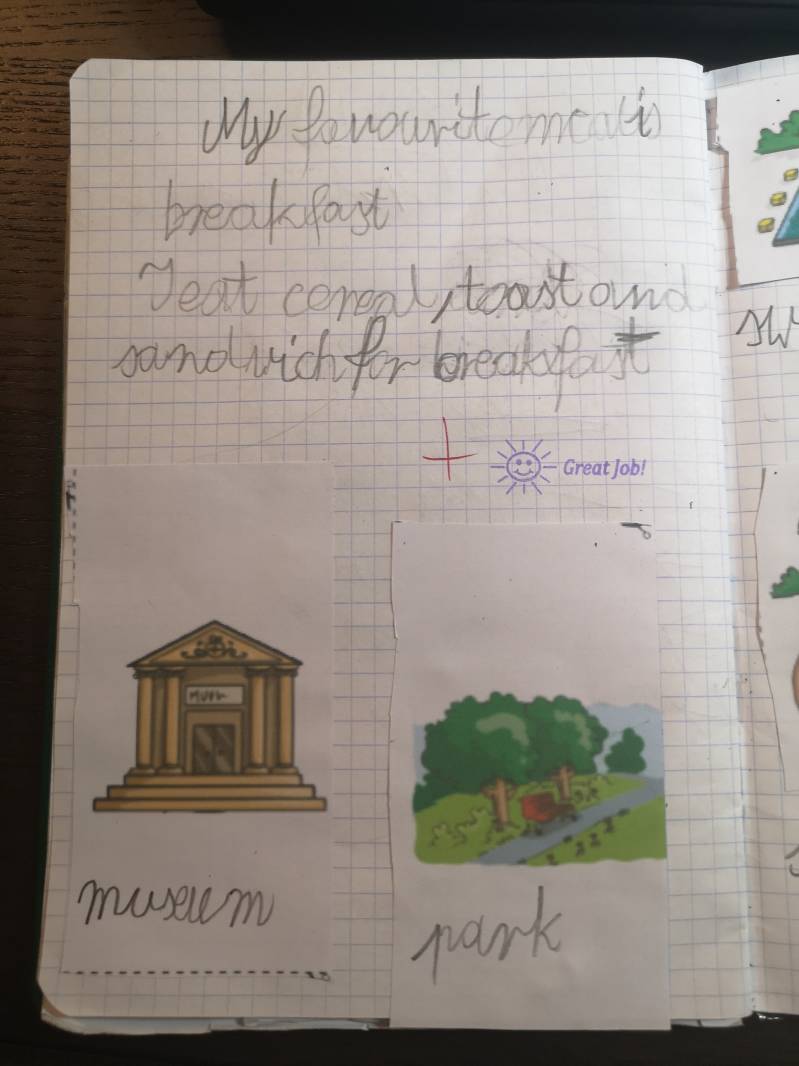 My favourite meal is
breakfast
I eat cereal, toast and
sandwich for breakfast
+
Great Job!
museum
park
sw